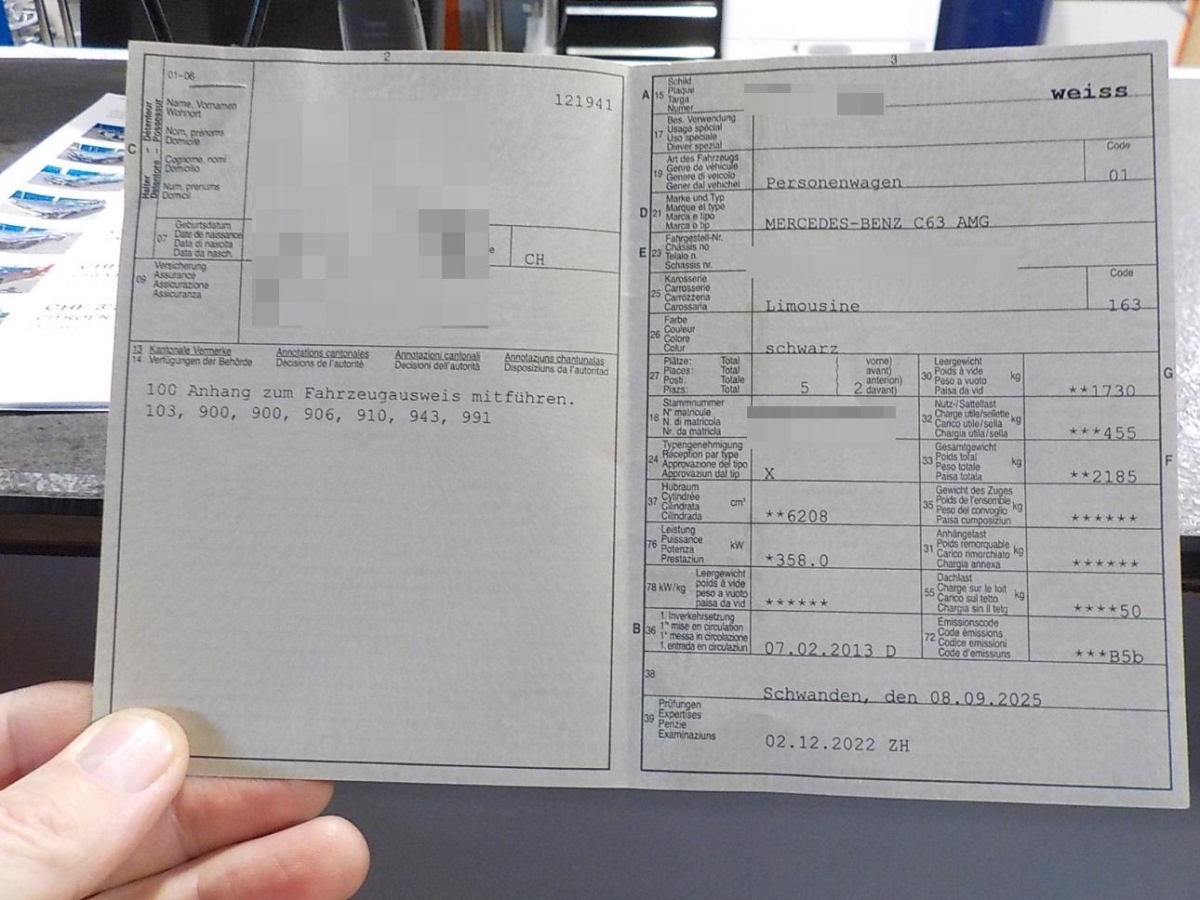 2
01-06
C
Halter Détenteur
Detentore Possessur
Name, Vornamen
Wohnort
Nom, prénoms
Domicile
Cognome, nomi
Domicilio
Num, prenums
Domicil
121941
07
Geburtsdatum
Date de naissance
Data di nascita
Data da nasch.
e
CH
09
Versicherung
Assurance
Assicurazione
Assicuranza
13 Kantonale Vermerke Annotations cantonales Annotazioni cantonali Annotaziuns chantunalas
14 Verfügungen der Behörde Décisions de l'autorité Decisioni dell'autorità Disposiziuns da l'autoritad
100 Anhang zum Fahrzeugausweis mitführen.
103, 900, 900, 906, 910, 943, 991
3
A 15
Schild
Plaque
Targa
Numer
weiss
17
Bes. Verwendung
Usage spécial
Uso speciale
Diever spezial
19
Art des Fahrzeugs
Genre de véhicule
Genere di veicolo
Gener dal vehichel
Personenwagen
Code
01
D 21
Marke und Typ
Marque et type
Marca e tipo
Marca e tip
MERCEDES-BENZ C63 AMG
E 23
Fahrgestell-Nr.
Châssis no
Telaio n.
Schassis nr.
25
Karosserie
Carrosserie
Carrozzeria
Carossaria
Limousine
Code
163
26
Farbe
Couleur
Colore
Colur
schwarz
27
Plätze: Total vorne)
Places: Total avant)
Posti: Totale anteriori)
Plazs: Total 5 2 davant)
30
Leergewicht
Poids à vide
Peso a vuoto
Paisa da vid
kg
**1730
G
18
Stammnummer
N° matricule
N. di matricola
Nr. da matricla
32
Nutz-/Sattellast
Charge utile/sellette
Carico utile/sella
Chargia utila/sella
kg
***455
24
Typengenehmigung
Réception par type
Approvazione del tipo
Approvaziun dal tip
X
33
Gesamtgewicht
Poids total
Peso totale
Paisa totala
kg
**2185
F
37
Hubraum
Cylindrée
Cilindrata
Cilindrada
cm³
**6208
35
Gewicht des Zuges
Poids de l'ensemble
Peso del convoglio
Paisa cumposiziun
kg
******
76
Leistung
Puissance
Potenza
Prestaziun
kW
*358.0
31
Anhängelast
Poids remorquable
Carico rimorchiato
Chargia annexa
kg
******
78 kW/kg
Leergewicht
poids à vide
peso a vuoto
paisa da vid
******
55
Dachlast
Charge sur le toit
Carico sul tetto
Chargia sin il tetg
kg
****50
B 36
1. Inverkehrsetzung
1re mise en circulation
1a messa in circolazione
1. entrada en circulaziun
07.02.2013 D
72
Emissionscode
Code émissions
Codice emissioni
Code d'emissiuns
***B5b
38
Schwanden, den 08.09.2025
39
Prüfungen
Expertises
Perizie
Examinaziuns
02.12.2022 ZH